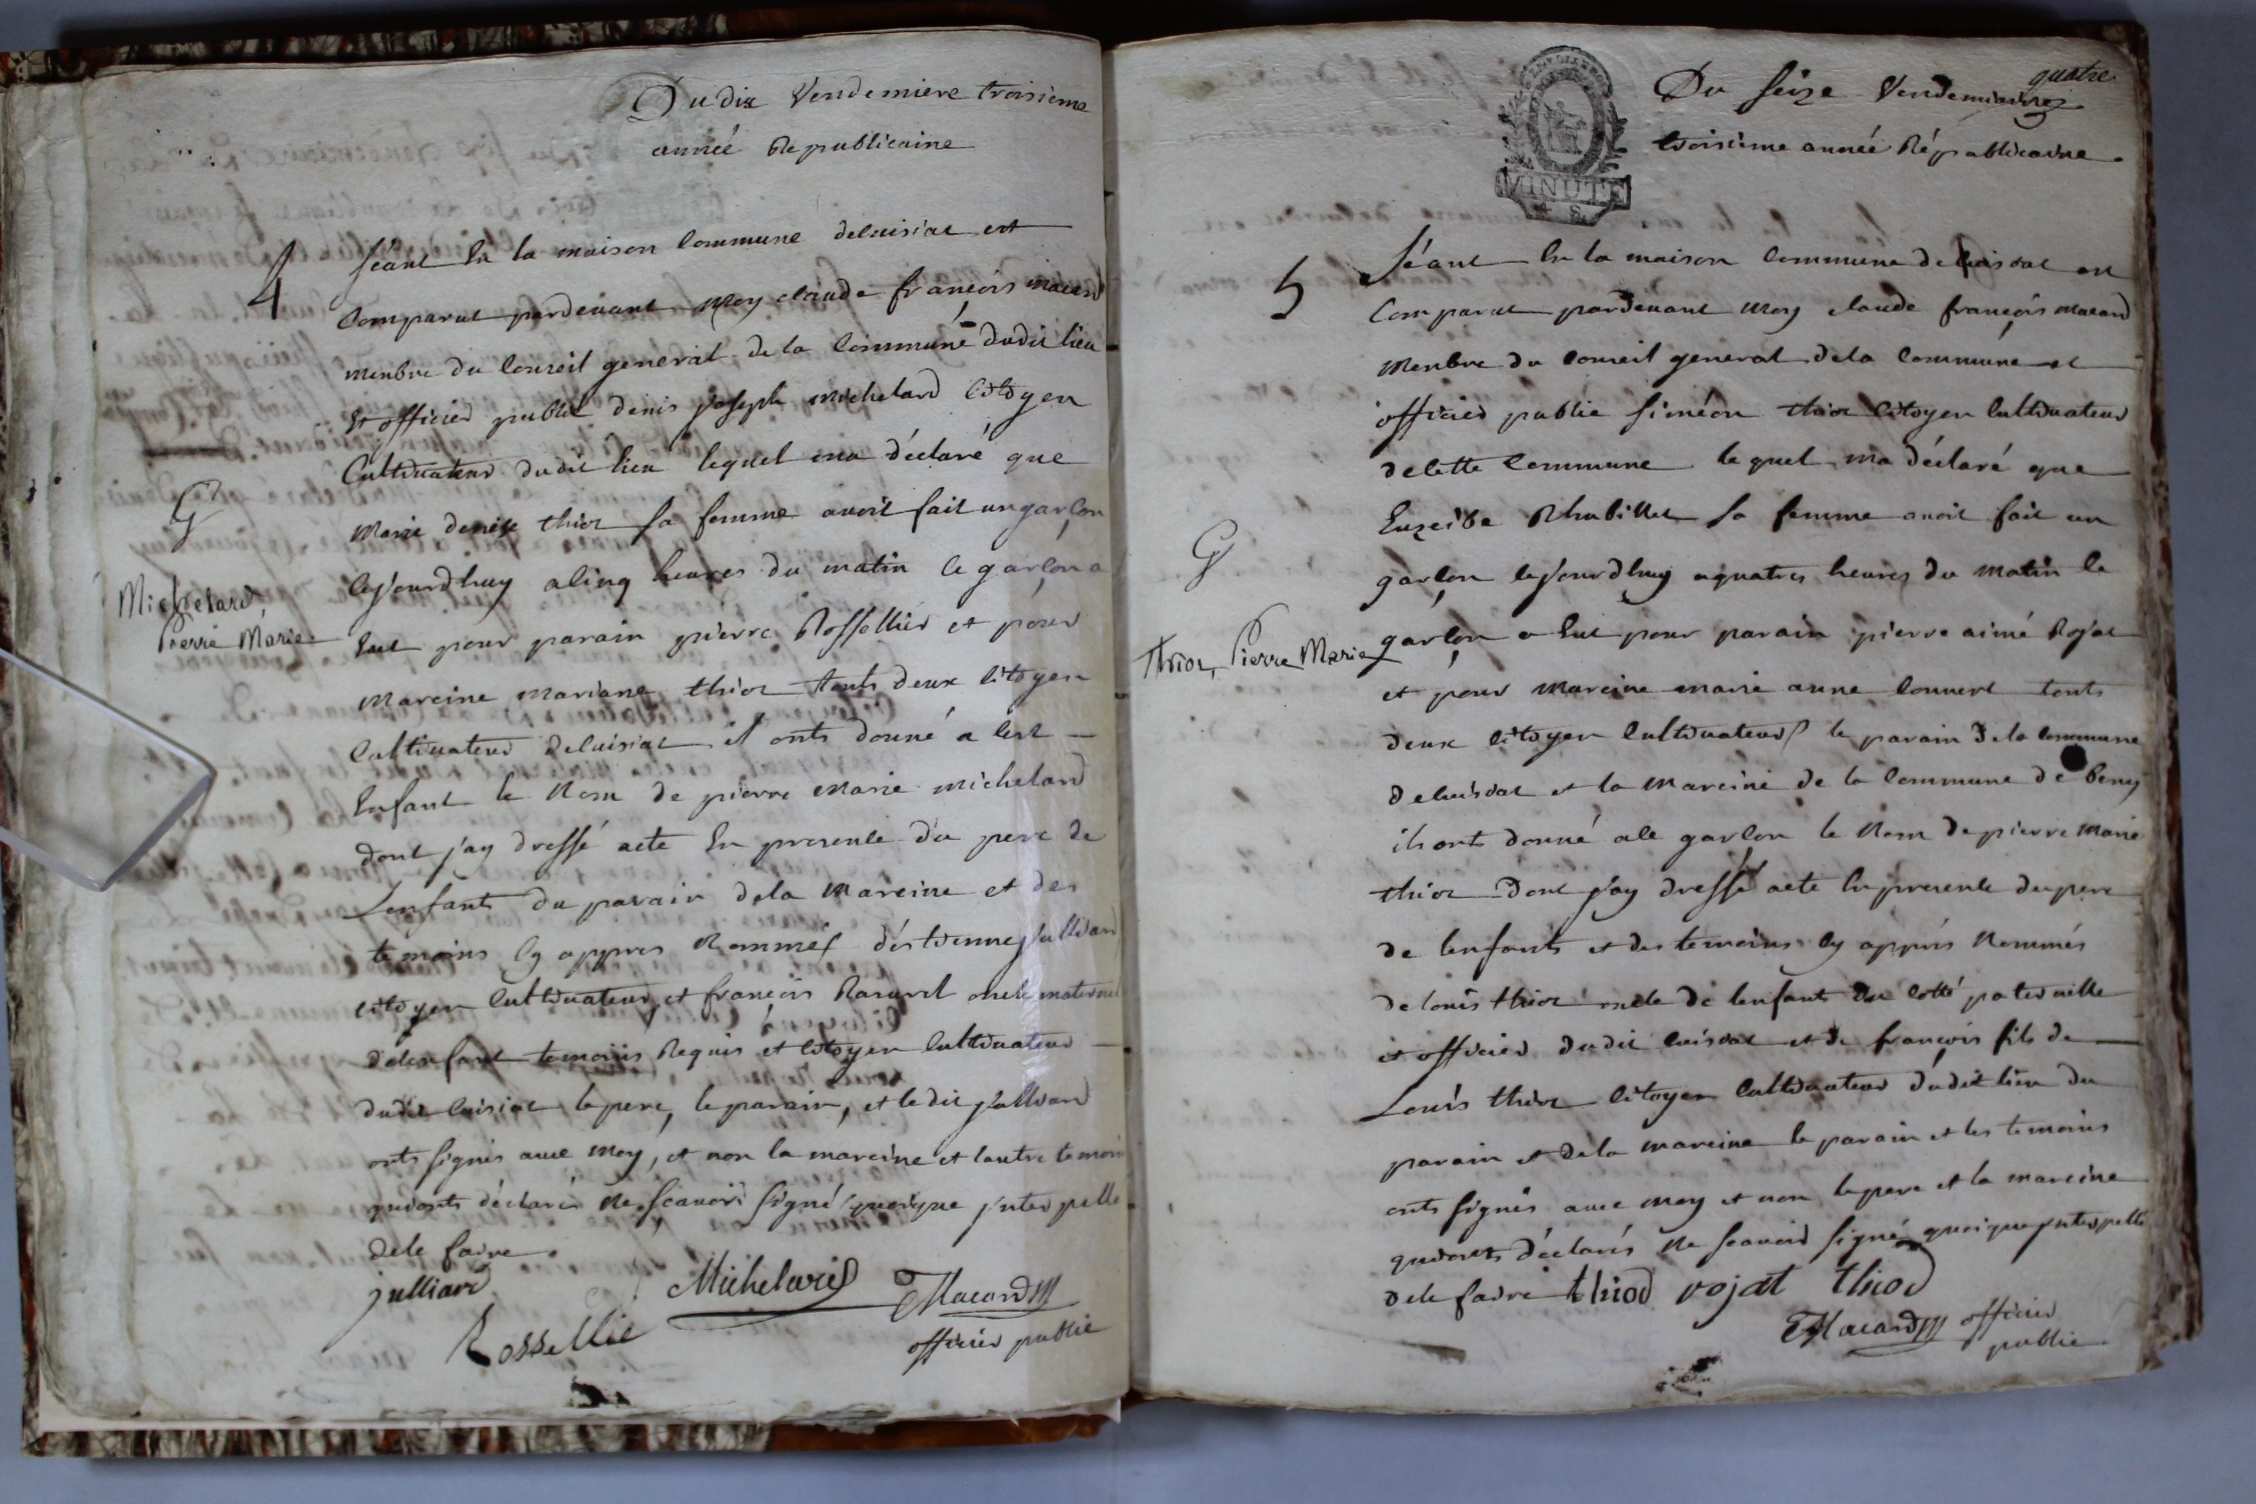 Du dix Vendemiere troisieme
année Republicaine
4
Séant En la maison Commune deluisiat est
Comparut pardevant Moy claude françois macard
menbre du Conseil general de la Commune dudit lieu
Et officier public denis joseph michelard Citoyen
Cultivateur dudit lieu lequel ma déclaré que
Marie denise thioz sa femme avoit fait un garçon
Cejourdhuy a cinq heures du matin Ce garçon a
G
Michelard,
Pierre Marie
Eut pour parain pierre Rossellier et pour
Mareine mariane thioz touts deux citoyen
Cultivateur deluisiat il onts donné a cest
Enfant le Nom de pierre Marie michelard
dont j'ay dressé acte En presence du pere de
Lenfants du parain dela Mareine et des
temoins Cy appres Nommés déstienne julliard
citoyen Cultivateur et françois oncle maternel
delenfant temoins Requis et citoyen Cultivateur
dudit luisiat lepere, le parain, et ledit julliard
onts signés avec Moy, et non la mareine et lautre temoin
quionts déclarés Ne scavoir signé quoique jnterpellé
dele faire.
julliard
Michelard
Macard
Rossellie
officier public
quatre
Du seize Vendemiaire
troisieme année Républicaine.
MINUTE
5
Séant En la maison Commune deluisiat est
Comparut pardevant Moy claude françois macard
Menbre du Conseil general dela Commune et
officier public siméon thioz Citoyen Cultivateur
decette Commune lequel ma déclaré que
Euzeibe Rhubillet sa femme avoit fait un
garçon cejourdhuy a quatres heures du matin le
G
Thioz, Pierre Marie
garçon a Eut pour parain pierre aimé Rojat
et pour mareine marie anne Convert touts
deux citoyen Cultivateurs le parain dela commune
deluisiat et la Mareine de la Commune de beny
ils onts donné ale garçon le Nom de pierre Marie
thioz Dont j'ay dressé acte En presence du pere
de lenfants et des temoins Cy apprés Nommés
de louis thioz oncle de lenfants du cotté paternelle
et officier dudit luisiat et de françois fils de
Louis thioz citoyen Cultivateur dudit lieu du
parain et dela mareine le parain et les temoins
onts signés avec moy et non lepere et la mareine
quionts déclarés Ne scavoir signé quoique jnterpellé
dele faire thiod rojat thiod
Macard officier
public